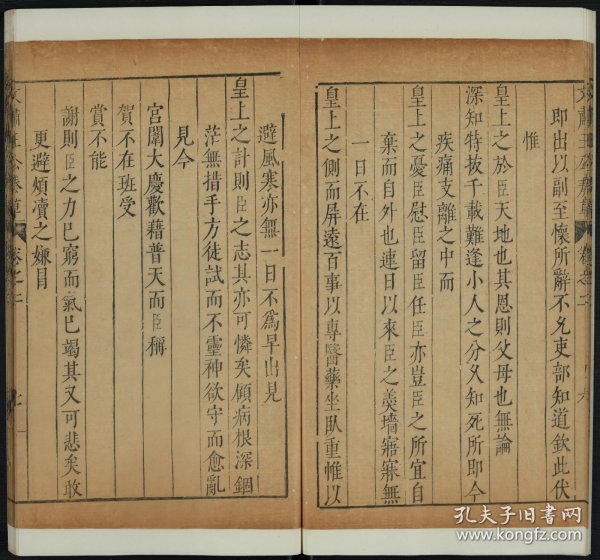 即出以副至懷所辭不允吏部知道欽此伏
惟
皇上之於臣天地也其恩則父母也無論
深知特抜千載難逢小人之分久知死所即今
疾痛支離之中而
皇上之憂臣慰臣留臣任臣亦豈臣之所宜自
棄而自外也連日以來臣之羹墻寤寐無
一日不在
皇上之側而屏遠百事以專醫藥坐臥重帷以
避風寒亦無一日不爲早出見
皇上之計則臣之志其亦可憐矣顧病根深錮
茫無措手方徒試而不靈神欲守而愈亂
見今
宮闈大慶歡藉普天而臣稱
賀不在班受
賞不能
謝則臣之力已窮而氣已竭其又可悲矣敢
更避煩瀆之嫌目
卷之二
孔夫子旧书网
www.kongfz.com